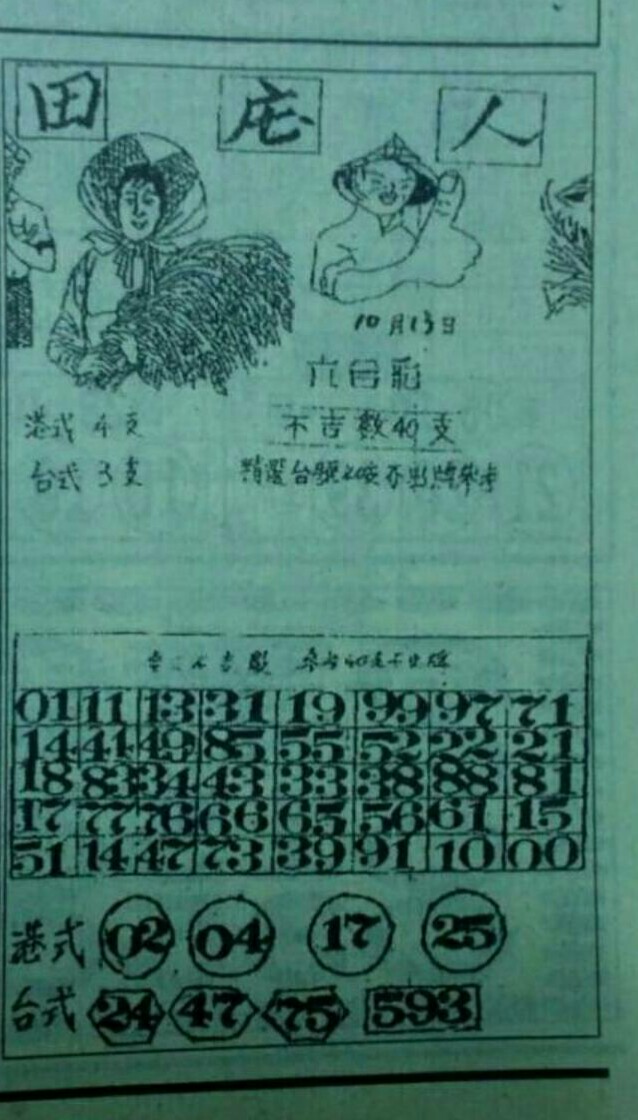 田庄人
10月13日
六合彩
港式 4支 不吉數40支
台式 3支 精選台號40支不出牌參考
不吉數 參考40支不出牌
01 11 13 31 19 99 97 71
14 44 49 85 55 52 22 21
18 83 34 43 33 38 88 81
17 77 76 66 65 56 61 15
51 14 47 73 39 91 10 00
港式 02 04 17 25
台式 24 47 75 593